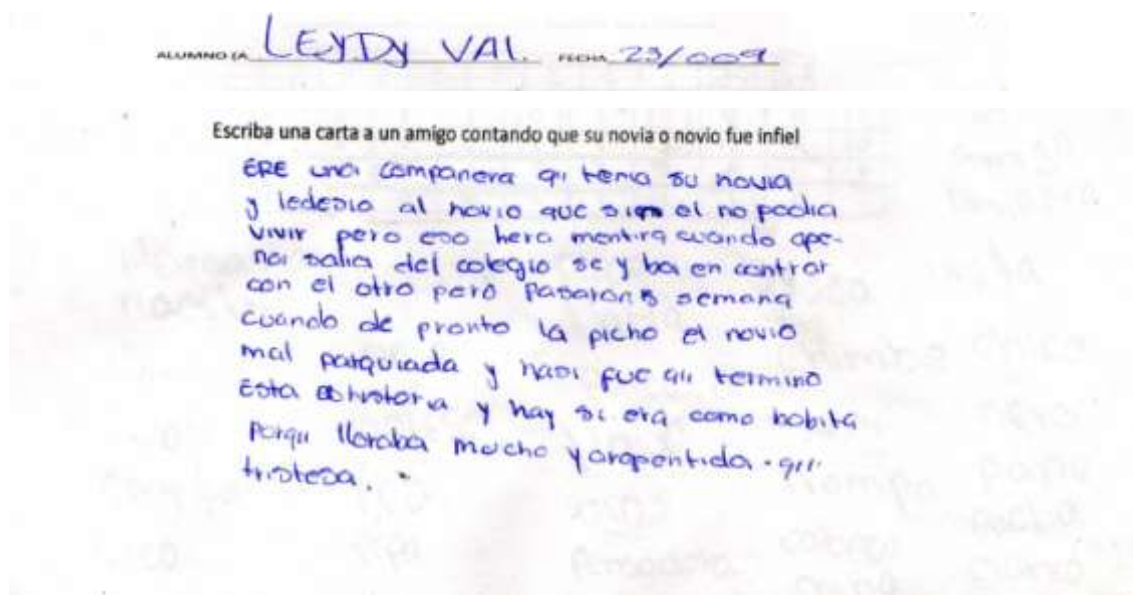 ALUMNO (A LEYDY VAL. FECHA 23/009
Escriba una carta a un amigo contando que su novia o novio fue infiel
ERE una companera qi tenia su novia
y ledesio al novio que sin el no podia
vivir pero eso hera mentira cuando ape-
nas salia del colegio se y ba en contrar
con el otro pero Pasaron semana
cuando de pronto la picho el novio
mal parquiada y hasi fue qii termino
Esta historia y hay si era como bobita
Porqu lloraba mucho y arepentida. qii
tristesa.